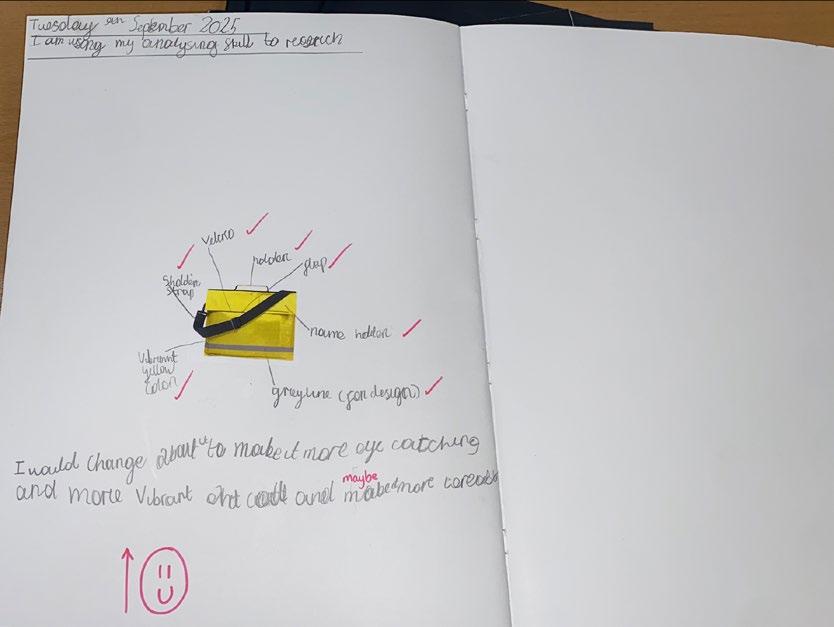 Tuesday 9th September 2025
I am using my analysing skill to research
velcro
holder
flap
Sholder
Strap
name holder
Vibrannt
yellow
Color
grey line (for design)
I would change about it to make it more eye catching
maybe
and more Vibrant and maybe more